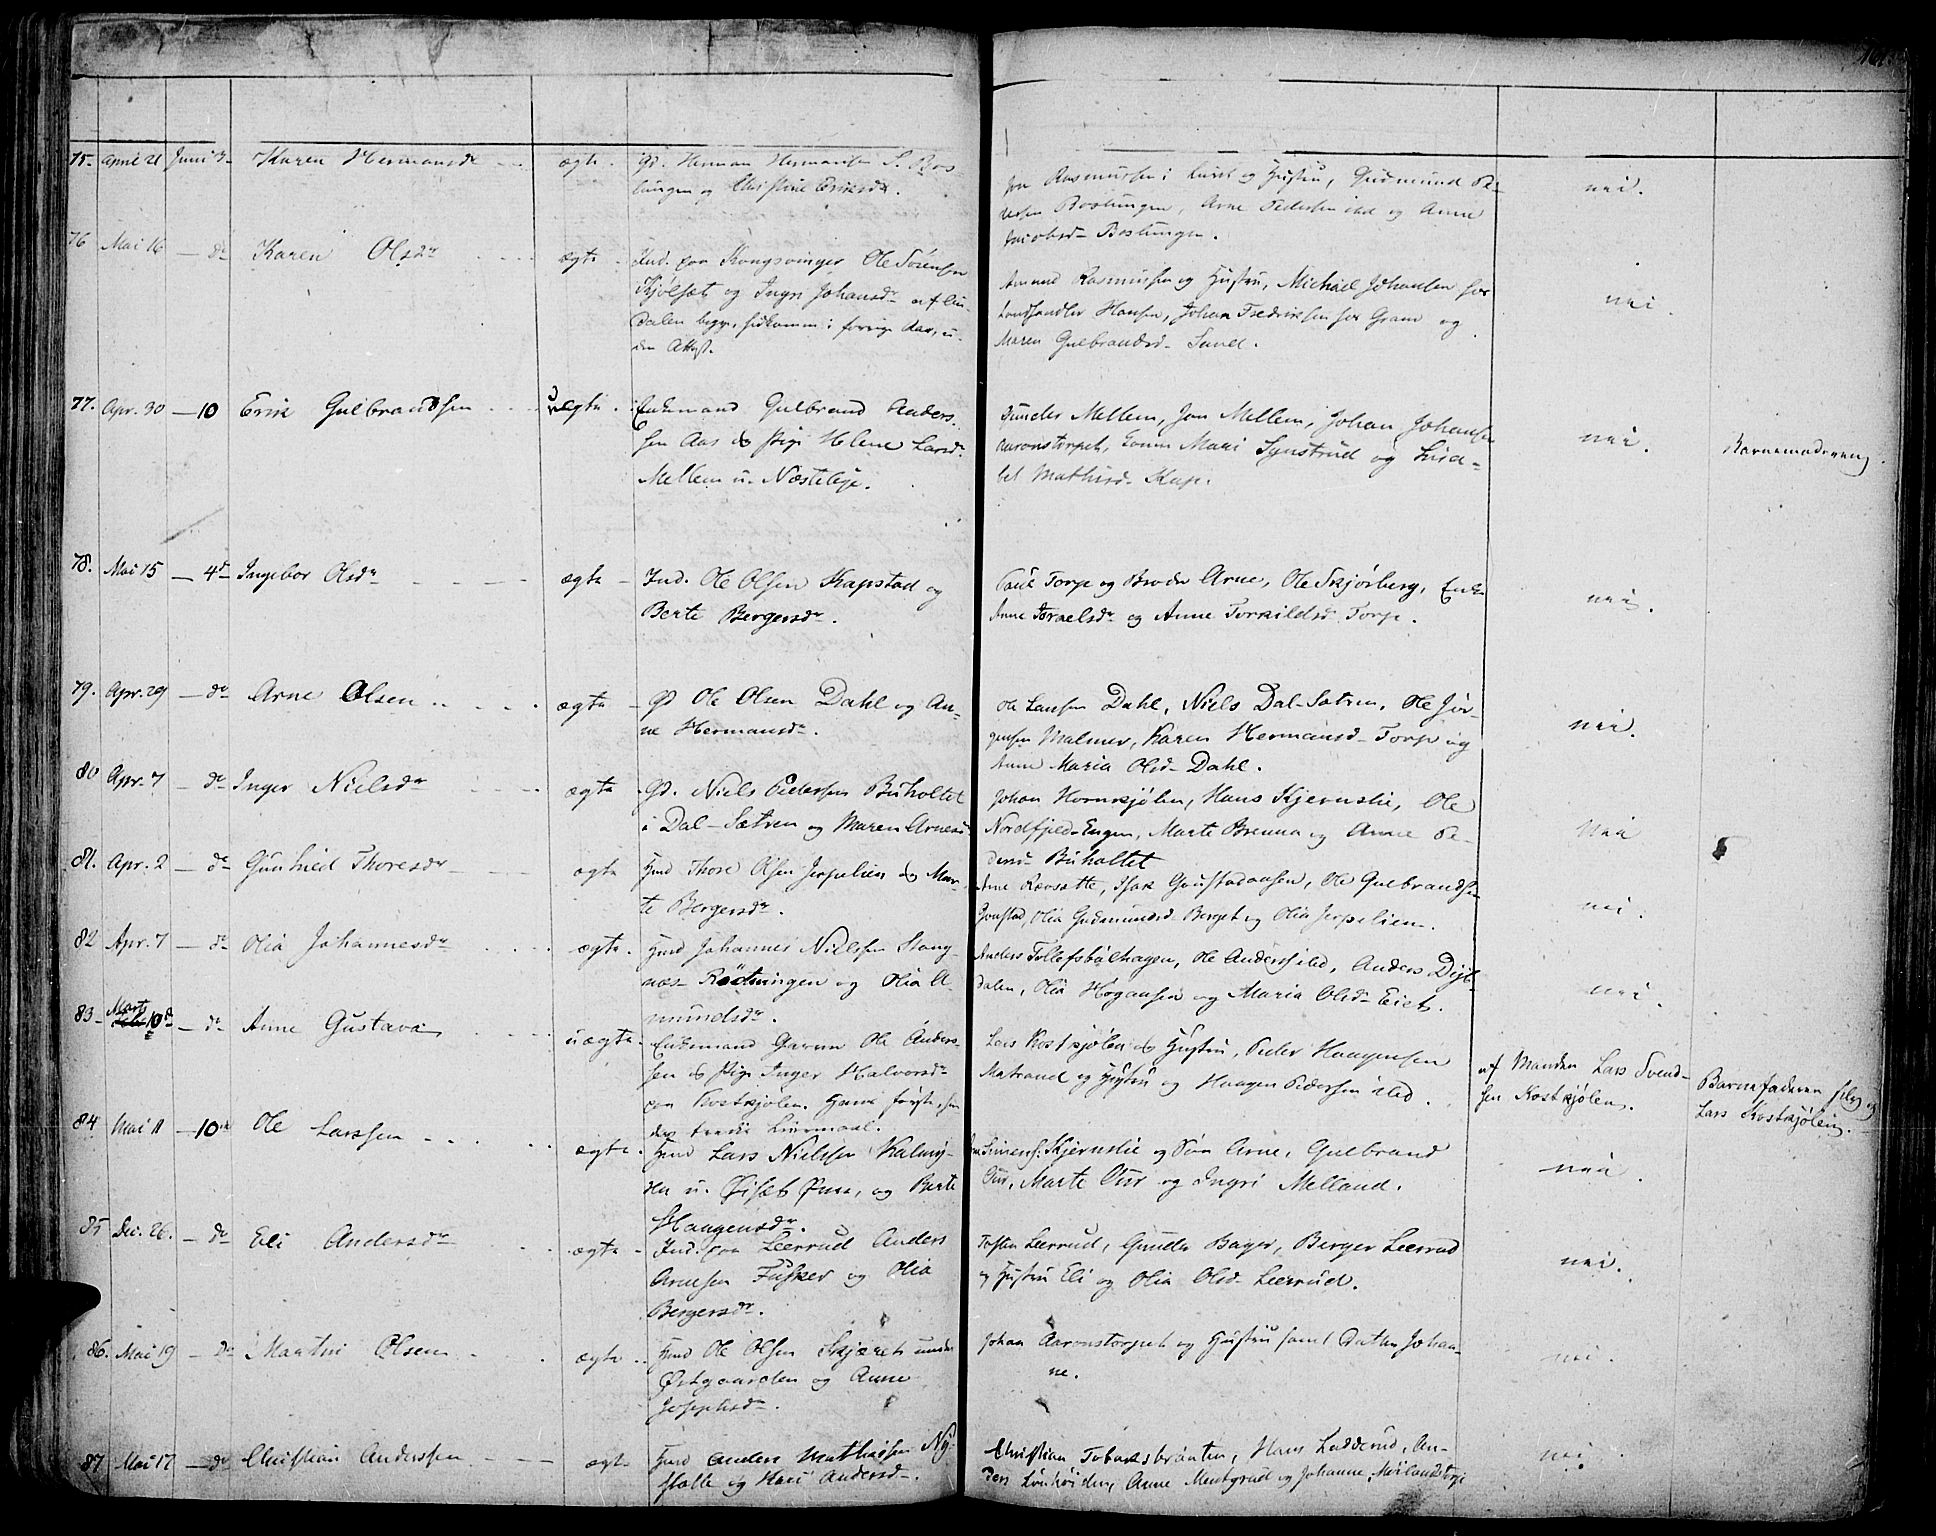 75. April 21 Juni 3 Karen Hermansdr ægte. Gd. Herman Hermansen S. Bos
tungen og Christine Eriksdr.
Rasmussen i Lund og Hustru, Gudmund Pe-
dersen Bostungen, Arne Pedersen ibd og Anne
Jacobsd Bostungen.
nei.
76 Mai 16 — do Karen Olsdr ægte Ind. paa Kongsvinger Ole Sörensen
Kjölsæt og Ingri Johansdr
Dalen i forrige Aar, u-
den Attest.
Amund Rasmussen og Hustru, Michael Johansen hos
Landhandler Hansen, Johan Fredriksen hos Gram og
Maren Gulbrandsd. Sund.
nei.
77. Apr. 30 — 10 Erik Gulbrandsen uægte. Enkemand Gulbrand Anders-
sen Aas & Pige Helene Larsdr
Mellem u. Næsteleje.
Gunder Mellem, Jon Mellem, Johan Johansen
Aaronstorpet, Mari Synstrud og Lisa-
bet Mathisd. Kap.
nei.
Barnemoderen
78. Mai 15 — 4de Ingebor Olsdr ægte Ind. Ole Olsen Kapstad og
Berte Bergersdr.
Paul Torp og Broder Arne, Ole Skjörberg, Enke
Anne Israelsdr og Anne Torkildsd Torp.
nei.
79. Apr. 29 — do Arne Olsen ægte Gd Ole Olsen Dahl og An-
ne Hermansdr.
Ole Larssen Dahl, Niels Dal-Sætren, Ole Jör-
gensen Malmer, Karen Hermansd Torp og
Anne Maria Olsd Dahl.
nei.
80 Apr. 7 — do Inger Nielsdr ægte Gd. Niels Pedersen Buholtet
i Dal-Sætren og Maren Arnesd
Johan Hornkjölen, Hans Kjernslie, Ole
Nordfjeld-Engen, Marte Brenna og Anne Pe-
dersd Buholtet
nei
81. Apr. 2 — do Gunhild Thoresdr ægte Hmd Thore Olsen Jerpelien & Mar-
te Bergersdr.
Arne Rævsætte, Isak Gaustadaasen, Ole Gulbrandsen
Gaustad, Olia Gudmundsd Berget og Olia Jerpelien.
nei.
82 Apr. 7 — do Olia Johannesdr ægte. Hmd Johannes Nielsen Stang-
næs-Rödningen og Olia A-
mundsdr.
Anders Tollefsbölhagen, Ole Anders ibd, Anders Digl-
dalen, Olia Högaasen og Maria Olsd Eiet.
nei.
83 Marts 10de — do Anne Gustava uægte. Enkemand Garver Ole Anders-
sen & Pige Inger Halvorsdr
paa Kostkjölen. Hans förste, hen-
des tredie Leiermaal.
Lars Kostkjölen & Hustru, Peder Haagensen
Matrand og Hustru og Haagen Pedersen ibd.
af Manden Lars Svend-
sen Kostkjölen.
Barnefaderen selv og
Lars Kostkjölen.
84 Mai 11 — 10de Ole Larssen ægte. Hmd Lars Nielsen Kalneg-
den u. Öisæt Östre, og Berte
Haagensdr.
Simens: Kjernslie og Sön Arne, Gulbrand
Tur, Marte Tur og Ingri Melland.
nei.
85 Dec. 26. — do Eli Andersdr ægte Ind. paa Leerud Anders
Arnesen Fusker og Olia
Bergersdr.
Tosten Leerrud, Gunder Bager, Berger Leerrud
og Hustru Eli og Olia Olsd Leerrud.
nei.
86. Mai 19 — do Martin Olsen ægte Hmd Ole Olsen Skjæret under
Östgaarden og Anne
Josephsdr.
Johan Aaronstorpet og Hustru samt Datter Johan-
ne.
nei.
87 Mai 17 — do Christian Anderssen ægte Hmd Anders Mathisen Ny-
statte og Kari Andersd.
Christian Tobaksbraaten, Hans Ladderud, An-
ders Linkoiden, Anne Mentgrud og Johanne Mörlandstorp
nei.